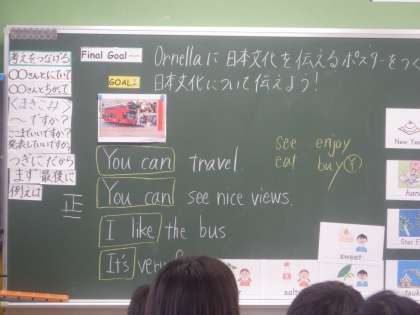 考えをつなげる
〇〇さんとにていて
〇〇さんとちがって
くまきこみ
〜ですか?
ここまでいいですか?
発表したいですか?
つぎに だから
まず 最後に
例えば
正
Final Goal
Ornellaに日本文化を伝えるポスターをつく
GOAL:
日本文化について伝えよう!
You can travel.
You can see nice views.
I like the bus
It's very
see enjoy
eat buy
New Yea
hana
Star F
sweet
salty